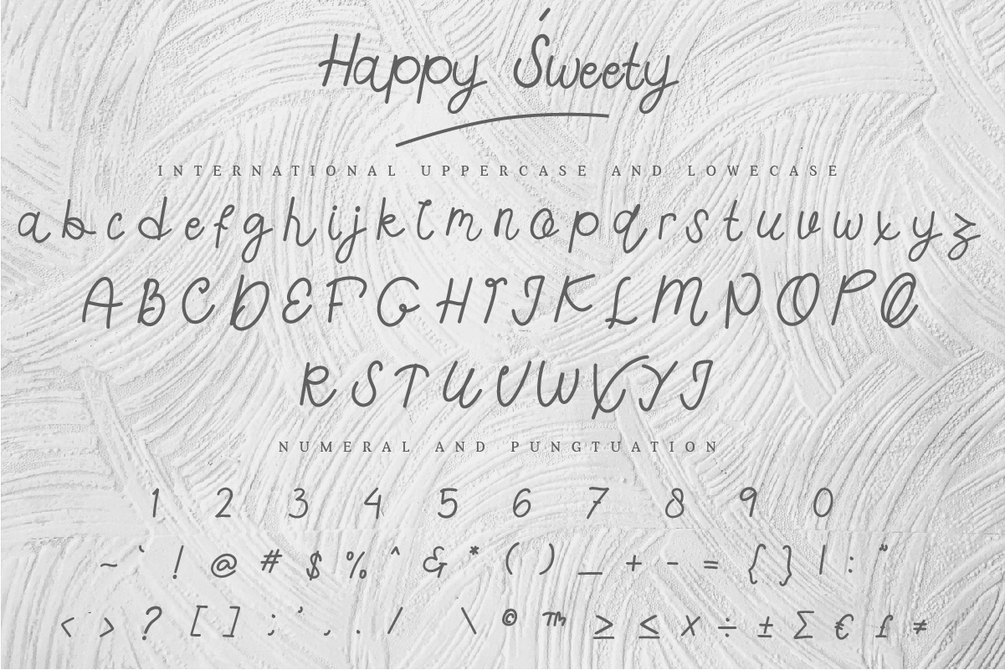 Happy Śweety
INTERNATIONAL UPPERCASE AND LOWECASE
a b c d e f g h i j k l m n o p q r s t u v w x y z
A B C D E F G H I J K L M N O P Q
R S T U V W X Y J
NUMERAL AND PUNGTUATION
1 2 3 4 5 6 7 8 9 0
~ ` ! @ # $ % ^ & * ( ) _ + - = { } | : "
< > ? [ ] ; ' , . / \ © ™ ≥ ≤ × ÷ ± Σ € £ ≠